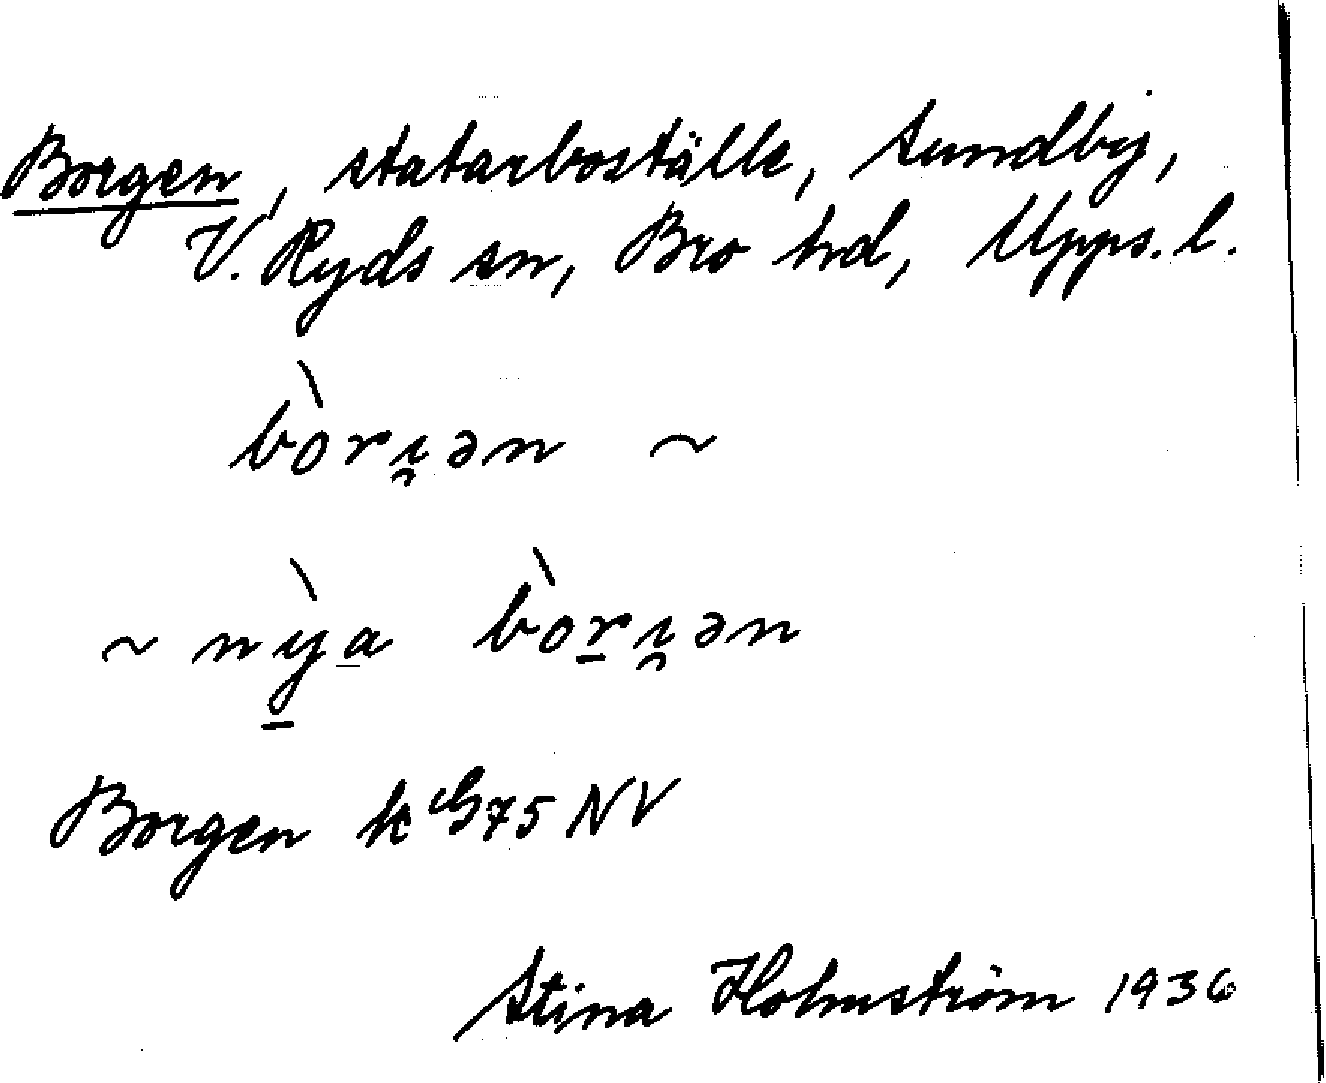 Borgen, statarboställe, Sundby,
V. Ryds sn, Bro hd, Upps. l.
bòrı̯ən ~
~ nỳa bòrı̯ən
Borgen k G75 NV
Stina Holmström 1936